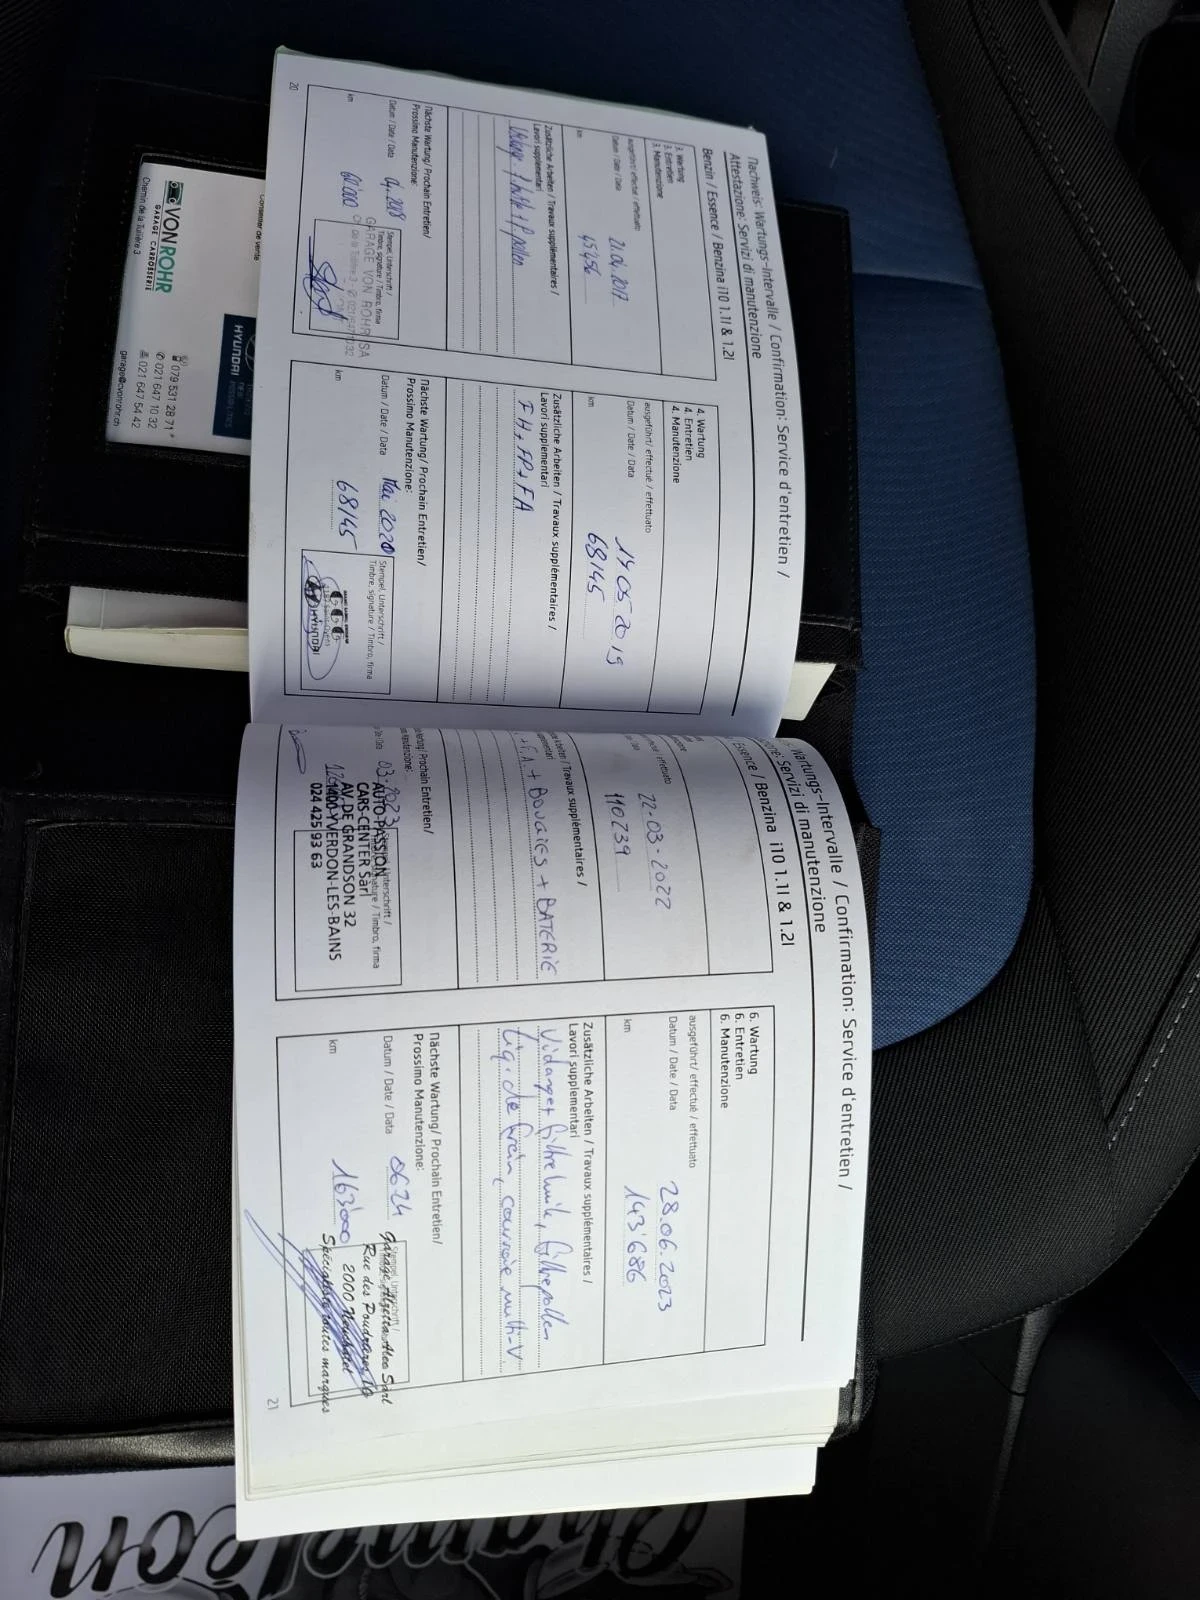 Nachweis: Wartungs-Intervalle / Confirmation: Service d'entretien /
Attestazione: Servizi di manutenzione
Benzin / Essence / Benzina i10 1.1l & 1.2l
3. Wartung
3. Entretien
3. Manutenzione
ausgeführt/ effectué / effettuato
Datum / Date / Data 21.04.2017
km 45'456
Zusätzliche Arbeiten / Travaux supplémentaires /
Lavori supplementari
Nächste Wartung/ Prochain Entretien/
Prossimo Manutenzione:
Datum / Date / Data 04.2018
km 60'000
Stempel, Unterschrift /
Timbre, signature / Timbro, firma
GARAGE VON ROHR SA
20
4. Wartung
4. Entretien
4. Manutenzione
ausgeführt/ effectué / effettuato
Datum / Date / Data 14 05 2019
km 68145
Zusätzliche Arbeiten / Travaux supplémentaires /
Lavori supplementari
FH+FP+FA
Nächste Wartung/ Prochain Entretien/
Prossimo Manutenzione:
Datum / Date / Data Mai 2020
km 68145
Stempel, Unterschrift /
Timbre, signature / Timbro, firma
HYUNDAI
Wartungs-Intervalle / Confirmation: Service d'entretien /
Servizi di manutenzione
Essence / Benzina i10 1.1l & 1.2l
effectué / effettuato
22-03-2022
110239
Arbeiten / Travaux supplémentaires /
+F.A. + BOUGIES + BATERIE
Prochain Entretien/
03-2023
AUTO PASSION
CARS-CENTER Sàrl
AV. DE GRANDSON 32
1400 YVERDON-LES-BAINS
024 425 93 63
6. Wartung
6. Entretien
6. Manutenzione
ausgeführt/ effectué / effettuato
Datum / Date / Data 28.06.2023
km 143'686
Zusätzliche Arbeiten / Travaux supplémentaires /
Lavori supplementari
Vidange+ filtre huile, filtre pollen
Liquide frein, courroie multi-V
Nächste Wartung/ Prochain Entretien/
Prossimo Manutenzione:
Datum / Date / Data 06 24
km 163'000
Garage Alzetta Aleo Sàrl
Rue des Poudrières 10
2000 Neuchâtel
Spécialiste toutes marques
21
VONROHR
GARAGE CARROSSERIE
Chemin de la Tuilière 3
HYUNDAI
NEW THINKING.
NEW POSSIBILITIES.
079 531 28 71
021 647 10 32
021 647 54 42
garage@cvonrohr.ch
Conseiller de vente
Chameleon